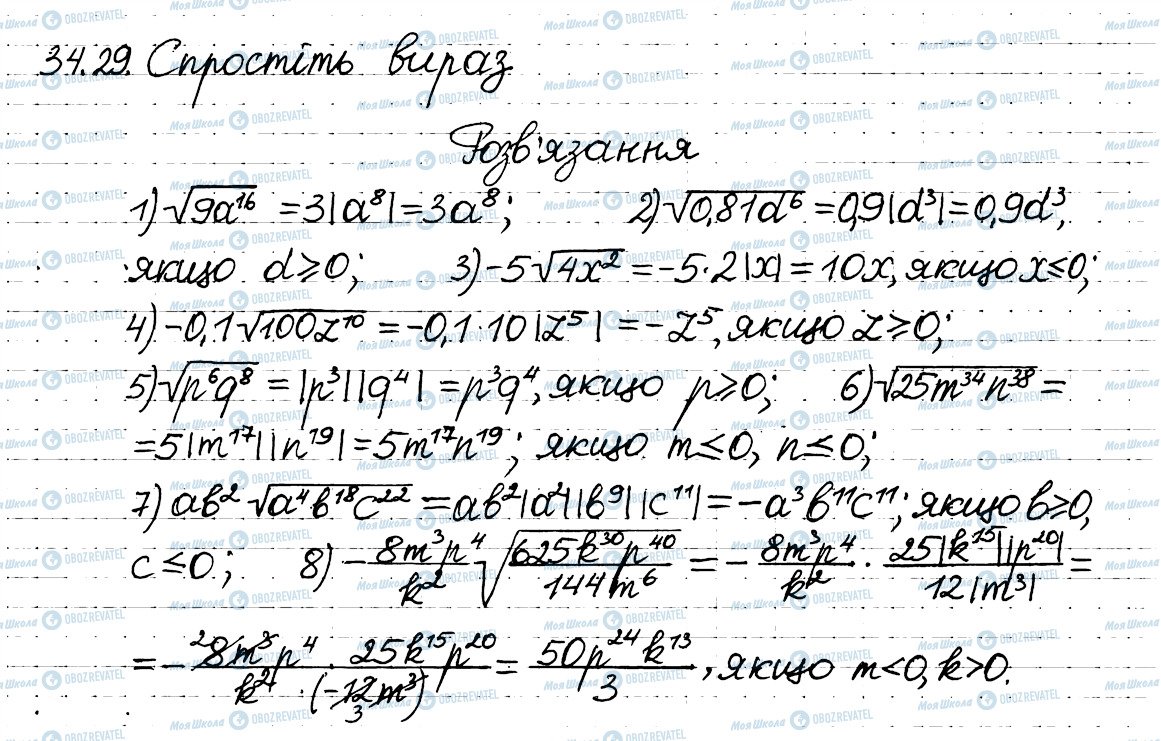 34.29. Спростіть вираз
Розв'язання
1) √9a¹⁶ = 3|a⁸| = 3a⁸; 2) √0,81d⁶ = 0,9|d³| = 0,9d³,
якщо d ≥ 0; 3) -5√4x² = -5·2|x| = 10x, якщо x ≤ 0;
4) -0,1√100z¹⁰ = -0,1·10|z⁵| = -z⁵, якщо z ≥ 0;
5) √p⁶q⁸ = |p³||q⁴| = p³q⁴, якщо p ≥ 0; 6) √25m³⁴n³⁸ =
= 5|m¹⁷||n¹⁹| = 5m¹⁷n¹⁹; якщо m ≤ 0, n ≤ 0;
7) ab²√a⁴b¹⁸c²² = ab²|a²||b⁹||c¹¹| = -a³b¹¹c¹¹; якщо b ≥ 0,
c ≤ 0; 8) - 8m³p⁴/k² √625k³⁰p⁴⁰/144m⁶ = - 8m³p⁴/k² · 25|k¹⁵||p²⁰|/12|m³| =
= - 8m³p⁴/k² · 25k¹⁵p²⁰/(-12m³) = 50p²⁴k¹³/3, якщо m < 0, k > 0.